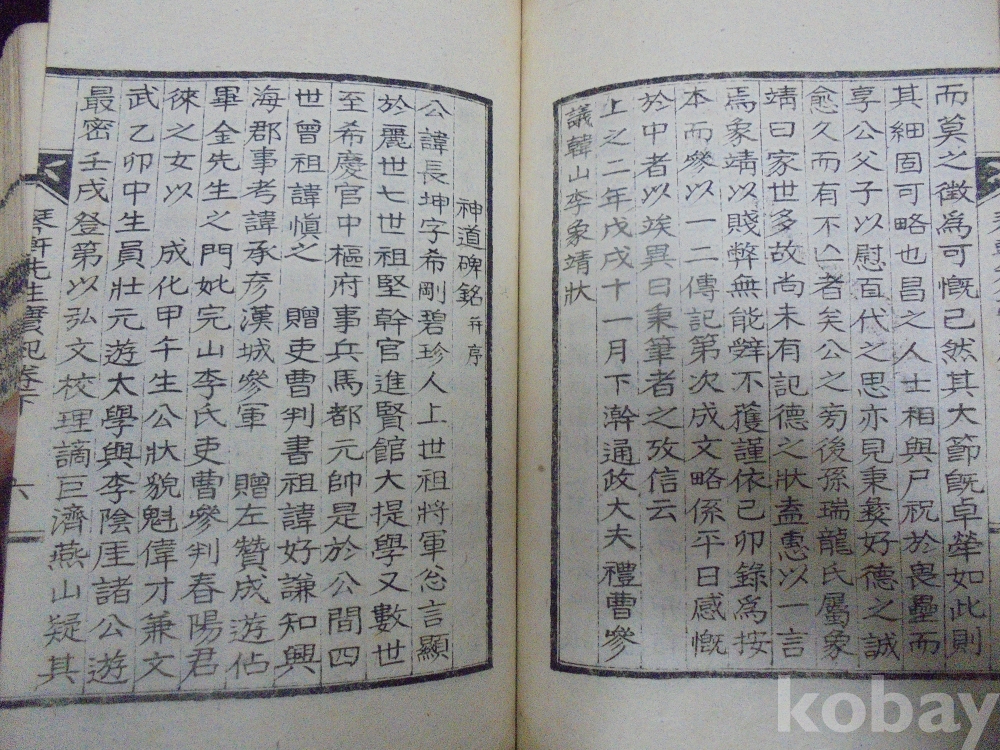 而莫之徵爲可慨已然其大節旣卓犖如此則
其細固可略也昌之人士相與尸祝於畏壘而
享公父子以慰百代之思亦見秉彝好德之誠
愈久而有不亡者矣公之旁後孫瑞龍氏屬象
靖曰家世多故尚未有記德之狀盍惠以一言
焉象靖以賤弊無能辭不獲謹依己卯錄爲按
本而參以一二傳記第次成文略係平日感慨
於中者以竢異日秉筆者之攷信云
上之二年戊戌十一月下澣通政大夫禮曹參
議韓山李象靖狀
神道碑銘 幷序
公諱長坤字希剛碧珍人上世祖將軍忩言顯
於麗世七世祖堅幹官進賢館大提學又數世
至希慶官中樞府事兵馬都元帥是於公間四
世曾祖諱愼之 贈吏曹判書祖諱好謙知興
海郡事考諱承彦漢城參軍 贈左贊成遊佔
畢金先生之門妣完山李氏吏曹參判春陽君
徠之女以 成化甲午生公狀貌魁偉才兼文
武乙卯中生員壯元遊太學與李陰厓諸公遊
最密壬戌登第以弘文校理謫巨濟燕山疑其
琴軒先生實紀卷下
六
kobay